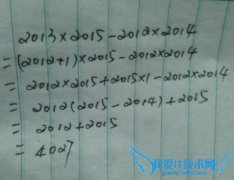 2013×2015-2012×2014
=(2012+1)×2015-2012×2014
=2012×2015+2015×1-2012×2014
=2012(2015-2014)+2015
=2012+2015
=4027